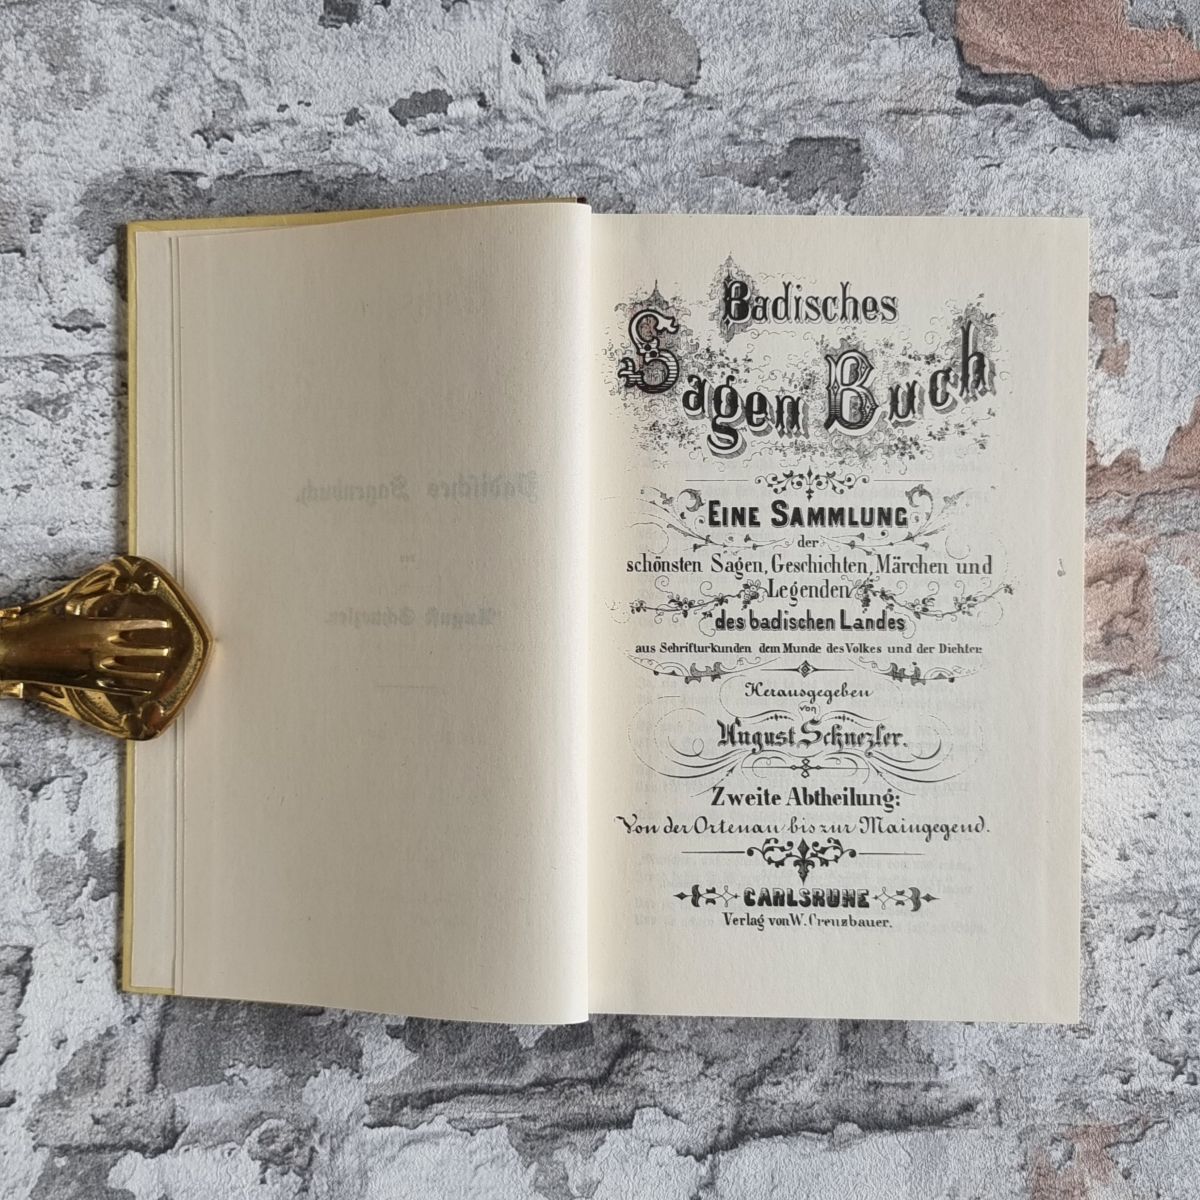 Badisches
Sagen Buch
EINE SAMMLUNG
der
schönsten Sagen, Geschichten, Märchen und
Legenden
des badischen Landes
aus Schrifturkunden dem Munde des Volkes und der Dichter
Herausgegeben
von
August Schnezler.
Zweite Abtheilung:
Von der Ortenau bis zur Maingegend.
CARLSRUHE
Verlag von W. Creuzbauer.